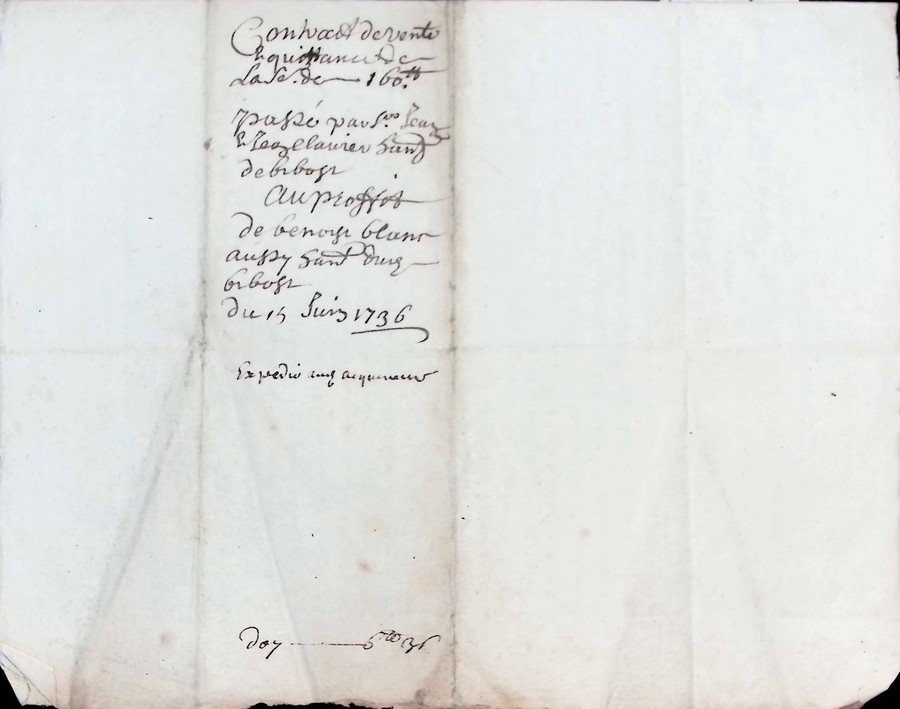 Contract de vente
& quittance de
La Se. de — 160.tt
passé par Srs Jean
& Jean Clavier hants
de bibost
au proffit
de benoist blanc
aussy hant dud
bibost
du 15 Juin 1736
Expedié aud acquereur
doy — 6tt 36